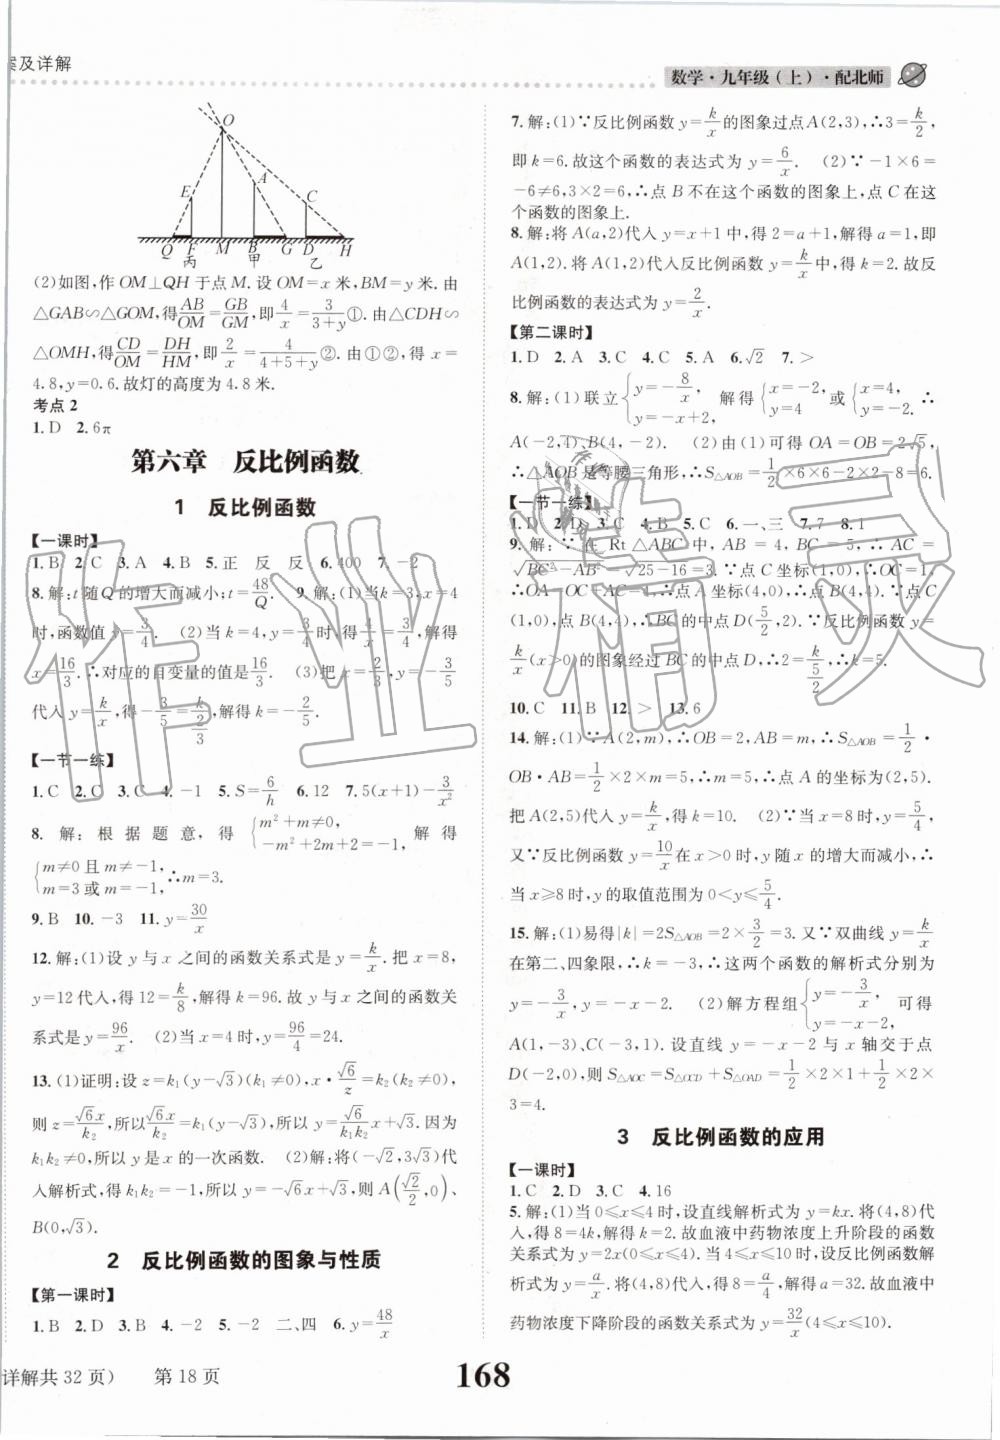 案及详解
数学·九年级(上)·配北师
O
E
A
C
Q F M B G H
丙 甲 乙
(2)如图,作OM⊥QH于点M.设OM=x米,BM=y米.由
△GAB∽△GOM,得AB/OM=GB/GM,即4/x=3/(3+y)①.由△CDH∽
△OMH,得CD/OM=DH/HM,即2/x=4/(4+5+y)②.由①②,得x=
4.8,y=0.6.故灯的高度为4.8米.
考点2
1.D 2.6π
第六章 反比例函数
1 反比例函数
【一课时】
1.B 2.C 3.A 4.B 5.正 反 反 6.400 7.-2
8.解:t随Q的增大而减小;t=48/Q. 9.解:(1)当k=3,x=4
时,函数值y=3/4. (2)当k=4,y=3/4时,得4/x=3/4,解得
x=16/3.∴对应的自变量的值是16/3. (3)把x=2/3,y=-3/5
代入y=k/x,得-3/5=k/(2/3),解得k=-2/5.
【一节一练】
1.C 2.C 3.C 4.-1 5.S=6/h 6.12 7.5(x+1)-3/x²
8.解:根据题意,得{m²+m≠0, -m²+2m+2=-1, 解得
{m≠0且m≠-1, m=3或m=-1, ∴m=3.
9.B 10.-3 11.y=30/x
12.解:(1)设y与x之间的函数关系式是y=k/x.把x=8,
y=12代入,得12=k/8,解得k=96.故y与x之间的函数关
系式是y=96/x. (2)当x=4时,y=96/4=24.
13.(1)证明:设z=k₁(y-√3)(k₁≠0),x·√6/z=k₂(k₂≠0),
则z=√6x/k₂,所以√6x/k₂=k₁(y-√3),所以y=√6/(k₁k₂)x+√3.因为
k₁k₂≠0,所以y是x的一次函数. (2)解:将(-√2,3√3)代
入解析式,得k₁k₂=-1,所以y=-√6x+√3,则A(√2/2,0)、
B(0,√3).
2 反比例函数的图象与性质
【第一课时】
1.B 2.D 3.B 4.-2 5.-2 二、四 6.y=48/x
7.解:(1)∵反比例函数y=k/x的图象过点A(2,3),∴3=k/2,
即k=6.故这个函数的表达式为y=6/x. (2)∵-1×6=
-6≠6,3×2=6,∴点B不在这个函数的图象上,点C在这
个函数的图象上.
8.解:将A(a,2)代入y=x+1中,得2=a+1,解得a=1,即
A(1,2).将A(1,2)代入反比例函数y=k/x中,得k=2.故反
比例函数的表达式为y=2/x.
【第二课时】
1.D 2.A 3.C 4.C 5.A 6.√2 7.>
8.解:(1)联立{y=-8/x, y=-x+2, 解得{x=-2, y=4 或{x=4, y=-2. ∴
A(-2,4)、B(4,-2). (2)由(1)可得OA=OB=2√5,
∴△AOB是等腰三角形,∴S△AOB=1/2×6×6-2×2-8=6.
【一节一练】
1.D 2.D 3.C 4.B 5.C 6.一、三 7.7 8.1
9.解:∵在Rt△ABC中,AB=4,BC=5,∴AC=
√BC²-AB²=√25-16=3.∵点C坐标(1,0),∴OC=1,
∴OA=OC+AC=4,∴点A坐标(4,0),∴点B(4,4).∵点C
(1,0),点B(4,4),∴BC的中点D(5/2,2).∵反比例函数y=
k/x(x>0)的图象经过BC的中点D,∴2=k/(5/2),∴k=5.
10.C 11.B 12.> 13.6
14.解:(1)∵A(2,m),∴OB=2,AB=m,∴S△AOB=1/2·
OB·AB=1/2×2×m=5,∴m=5,∴点A的坐标为(2,5).
把A(2,5)代入y=k/x,得k=10. (2)∵当x=8时,y=5/4,
又∵反比例函数y=10/x在x>0时,y随x的增大而减小,∴
当x≥8时,y的取值范围为0<y≤5/4.
15.解:(1)易得|k|=2S△AOB=2×3/2=3.又∵双曲线y=k/x
在第二、四象限,∴k=-3,∴这两个函数的解析式分别为
y=-3/x,y=-x-2. (2)解方程组{y=-3/x, y=-x-2, 可得
A(1,-3)、C(-3,1).设直线y=-x-2与x轴交于点
D(-2,0),则S△AOC=S△OCD+S△OAD=1/2×2×1+1/2×2×
3=4.
3 反比例函数的应用
【一课时】
1.C 2.D 3.C 4.16
5.解:(1)当0≤x≤4时,设直线解析式为y=kx.将(4,8)代
入,得8=4k,解得k=2.故血液中药物浓度上升阶段的函数
关系式为y=2x(0≤x≤4).当4≤x≤10时,设反比例函数解
析式为y=a/x.将(4,8)代入,得8=a/4,解得a=32.故血液中
药物浓度下降阶段的函数关系式为y=32/x(4≤x≤10).
详解共32页) 第18页
168
作业精灵